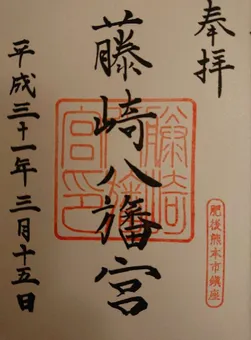 奉拝
藤崎八旛宮
平成三十一年三月十五日
藤崎八旛宮印
肥後熊本市鎮座